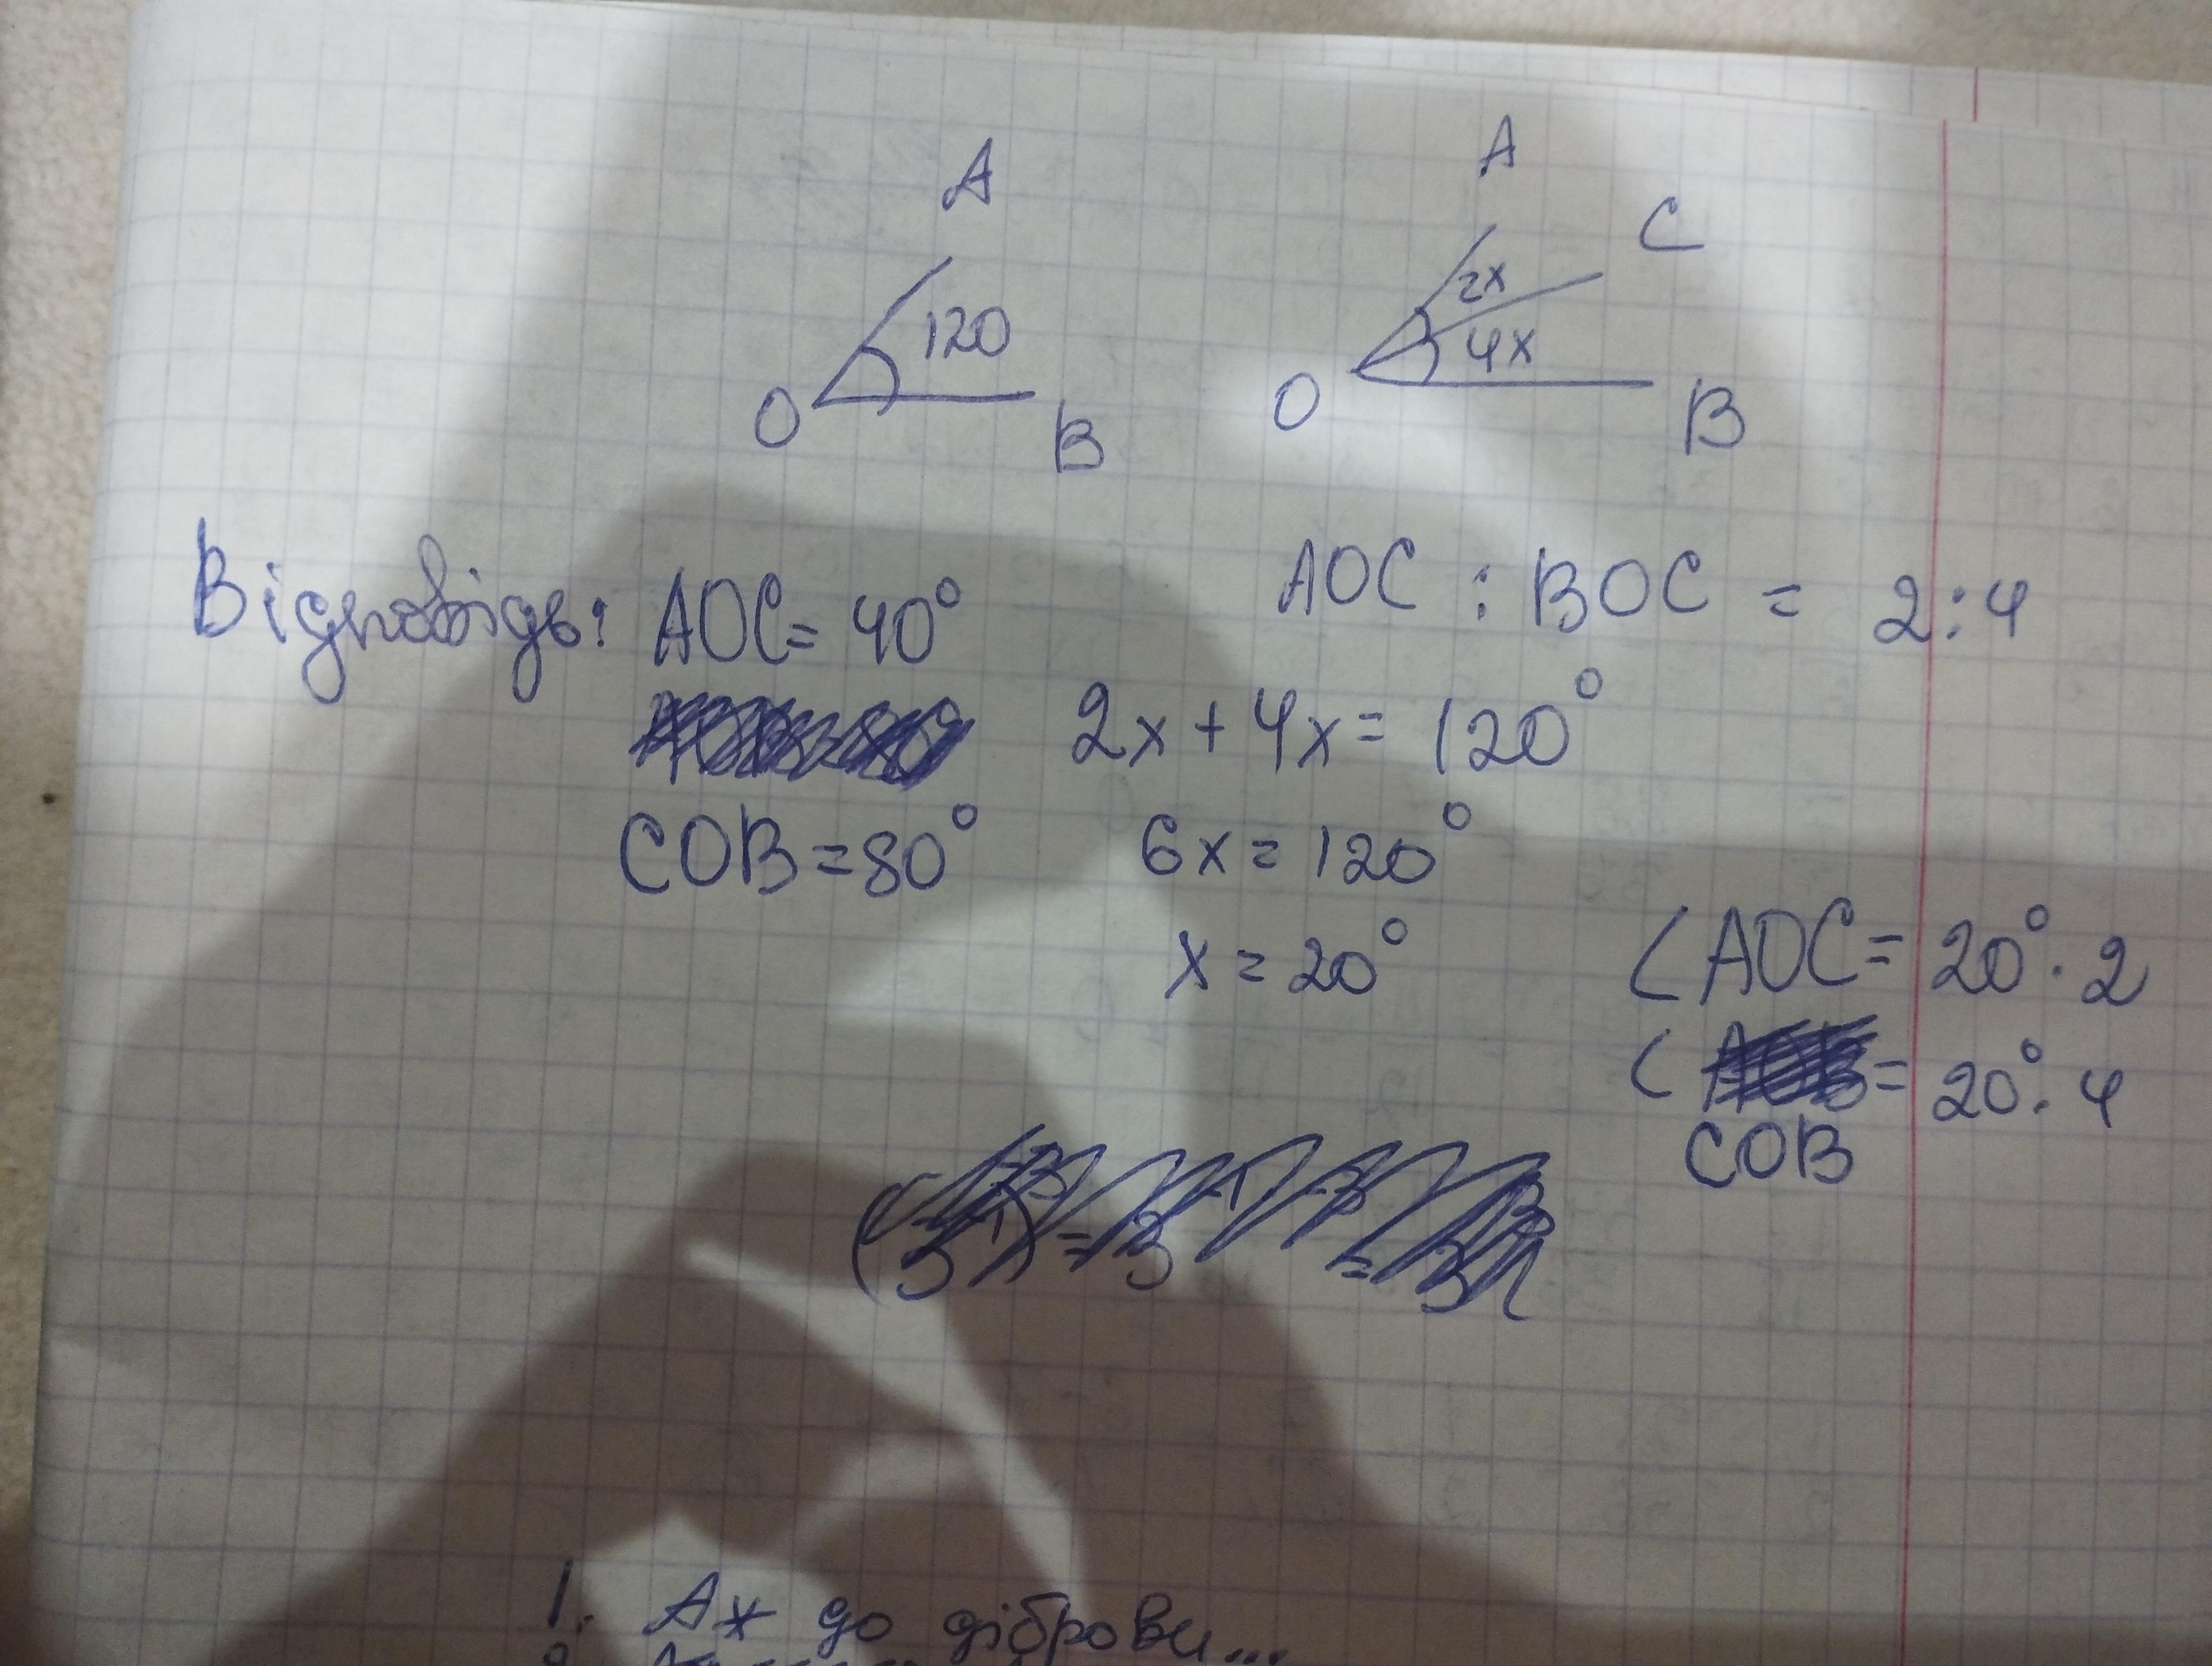 A
A
C
120
2x
4x
O
B
O
B
AOC : BOC = 2:4
Відповідь: AOC = 40°
2x + 4x = 120°
COB = 80°
6x = 120°
x = 20°
∠AOC = 20° · 2
∠ = 20° · 4
COB
1. Аж до діброви...